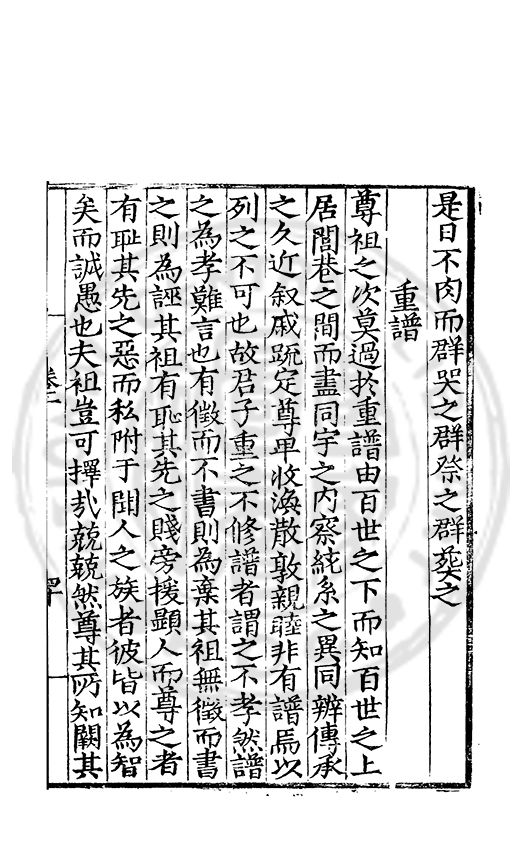 是日不肉而群哭之群祭之群葬之
重譜
尊祖之次莫過於重譜由百世之下而知百世之上
居閭巷之間而盡同宇之内察統系之異同辨傳承
之久近叙戚疏定尊卑收渙散敦親睦非有譜焉以
列之不可也故君子重之不修譜者謂之不孝然譜
之為孝難言也有徵而不書則為棄其祖無徵而書
之則為誣其祖有恥其先之賤旁援顯人而尊之者
有恥其先之惡而私附于聞人之族者彼皆以為智
矣而誠愚也夫祖豈可擇哉兢兢然尊其所知闕其
卷一